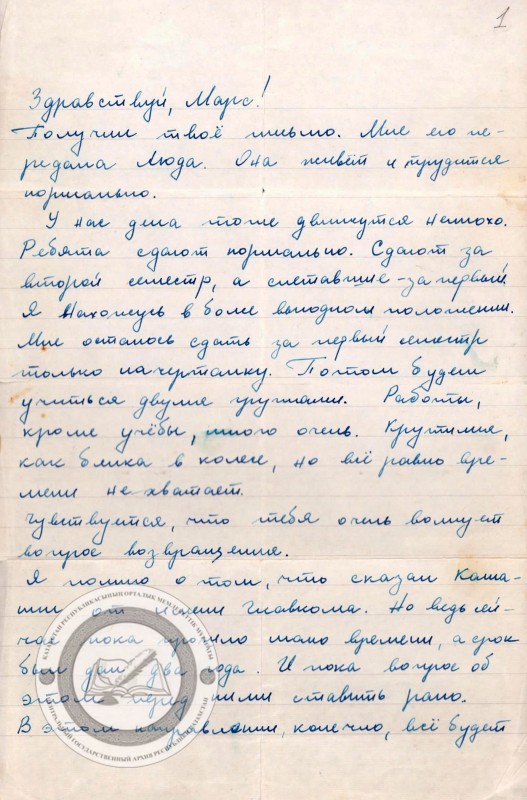 1
Здравствуй, Марс!
Получил твоё письмо. Мне его пе-
редала Люда. Она живёт и трудится
нормально.
У нас дела тоже движутся неплохо.
Ребята сдают нормально. Сдают за
второй семестр, а слетавшие - за первый.
Я нахожусь в более выгодном положении.
Мне осталось сдать за первый семестр
только начерталку. Потом будем
учиться двумя группами. Работы,
кроме учёбы, много очень. Крутимся,
как белка в колесе, но всё равно вре-
мени не хватает.
Чувствуется, что тебя очень волнует
вопрос возвращения.
Я помню о том, что сказал Кама-
нин от имени Главкома. Но ведь сей-
час пока прошло мало времени, а срок
был дан два года. И пока вопрос об
этом перед ними ставить рано.
В этом направлении, конечно, всё будет
ҚАЗАҚСТАН РЕСПУБЛИКАСЫНЫҢ ОРТАЛЫҚ МЕМЛЕКЕТТІК МҰРАҒАТЫ
ЦЕНТРАЛЬНЫЙ ГОСУДАРСТВЕННЫЙ АРХИВ РЕСПУБЛИКИ КАЗАХСТАН